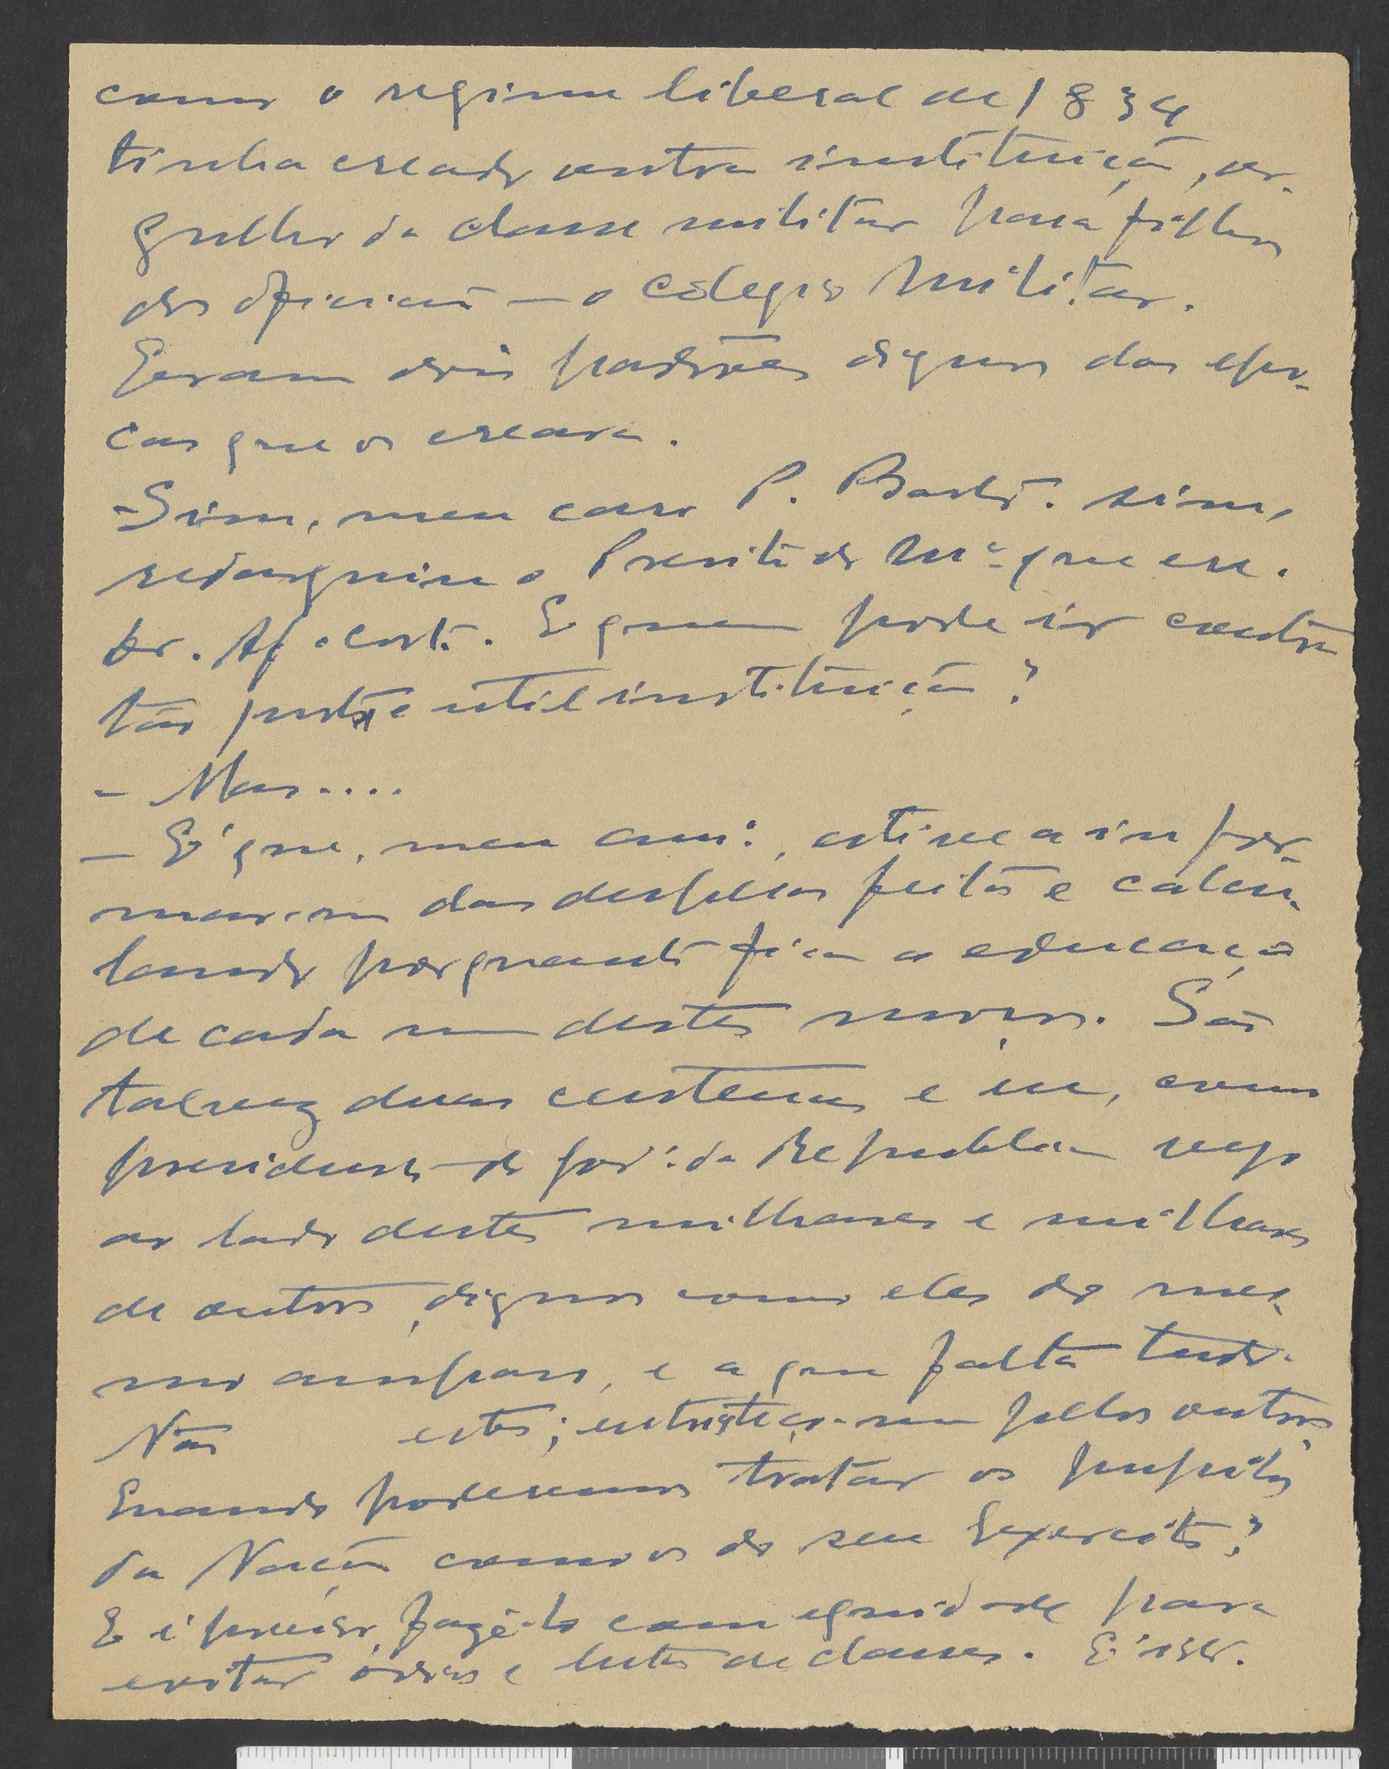 como o regimen liberal de 1834
tinha creado outra instituição, or-
gulho da classe militar para filhos
dos oficiais — o Colegio Militar.
Eeram dois padrões dignos das epo-
cas que os creara.
- Sim, meu caro P. Bastos. sim,
redarguiu o Presite do Mo que era.
dr. Afo Costa. E quem pode ir contra
tão justa e util instituição?
- Mas....
— E' que, meu amo, estive a infor-
mar-me das despesas feitas e calcu-
lando por quanto fica a educação
de cada um destes novos. São
talvez duas centenas e eu, como
presidente do gov: da Republica vejo
ao lado destes milhares e milhares
de outros, dignos como eles do mes-
mo amparo, e a que falta tudo.
Não estes; entristeço-me pelos outros.
Quando poderemos tratar os pupilos
da Nação como os do seu Exercito?
E é preciso fazê-lo com equidade para
evitar odios e lutas de classes. E' isso.